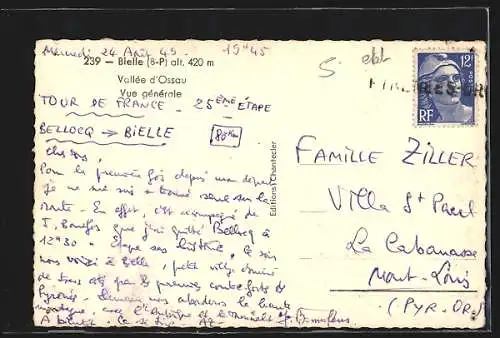 Mercredi 24 Août 49 - 19H45
239 — Bielle (B-P) alt. 420 m
Vallée d'Ossau
Vue générale
TOUR DE FRANCE - 25ÈME ÉTAPE
BELLOCQ → BIELLE 80Km
Chers
Pour la première fois depuis mon départ
je ne me suis trouvé seul sur la
route - En effet, c'est accompagné de
J. que j'ai quitté Bellocq à
12H30 - Étape sans histoire. Ce soir
nous voici à Bielle, petit village
de tous côtés par les premiers contreforts des
Pyrénées - Demain nous abordons la haute
montagne, avec l'Aubisque et le Tourmalet
A bientôt.
Editions Chantecler
12F
POSTES
RF
FAMILLE ZILLER
Villa St Paul
La Cabanasse
Mont-Louis
(PYR-OR.)